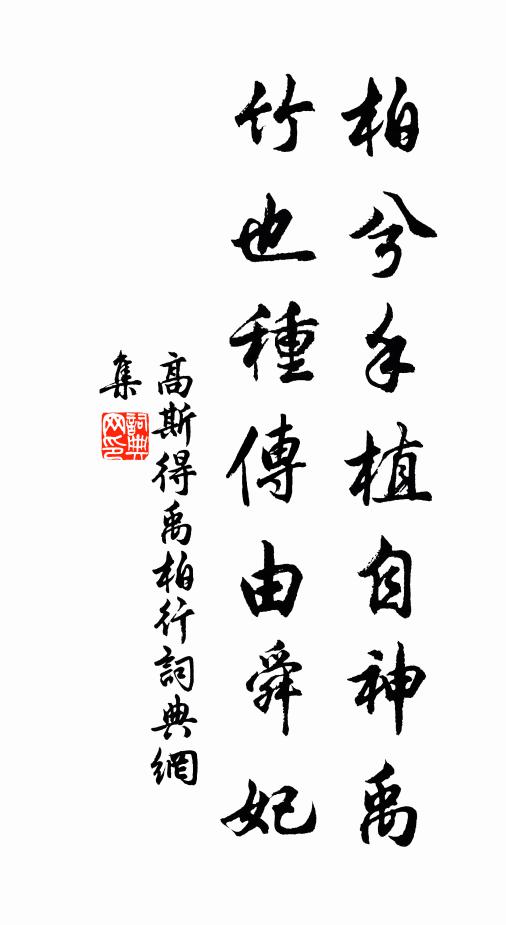 柏兮手植自神禹
竹也種傳由舜妃
高斯得禹柏行詞典網
集
詞典
网印